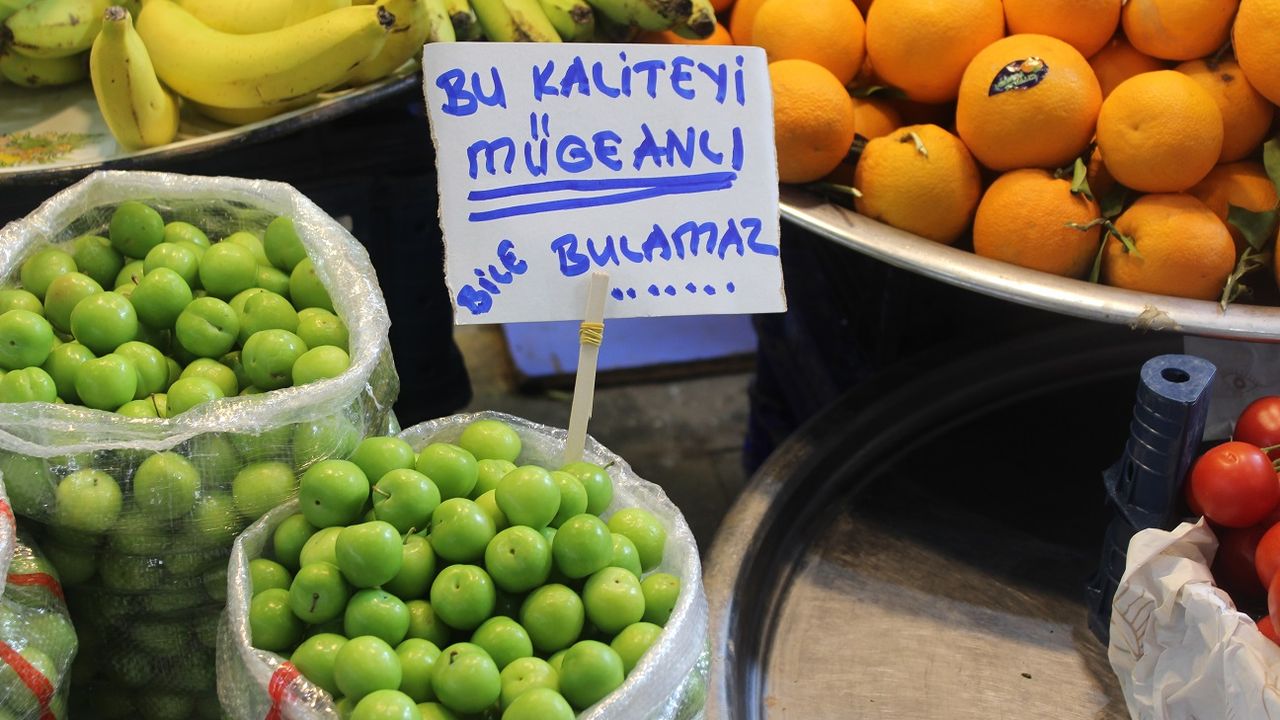 BU KALİTEYİ
MÜGEANLI
BİLE BULAMAZ
........